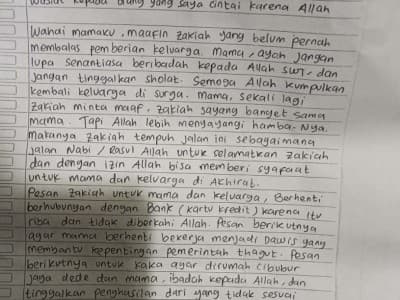 Wasiat kepada orang yang saya cintai karena Allah
Wahai mamaku, maafin zakiah yang belum pernah
membalas pemberian keluarga. Mama, ayah jangan
lupa senantiasa beribadah kepada Allah SWT, dan
jangan tinggalkan sholat. Semoga Allah kumpulkan
kembali keluarga di surga. Mama, sekali lagi
zakiah minta maaf, zakiah sayang banget sama
mama. Tapi Allah lebih menyayangi hamba-Nya.
makanya zakiah tempuh jalan ini sebagaimana
jalan Nabi / Rasul Allah untuk selamatkan zakiah
dan dengan izin Allah bisa memberi syafaat
untuk mama dan keluarga di Akhirat.
Pesan zakiah untuk mama dan keluarga, Berhenti
berhubungan dengan Bank (kartu kredit) karena itu
riba dan tidak diberkahi Allah. Pesan berikutnya
agar mama berhenti bekerja menjadi Dawis yang
membantu kepentingan pemerintah thogut. Pesan
berikutnya untuk kaka agar dirumah cibubur
jaga dede dan mama, ibadah kepada Allah, dan
tinggalkan penghasilan dari yang tidak sesuai